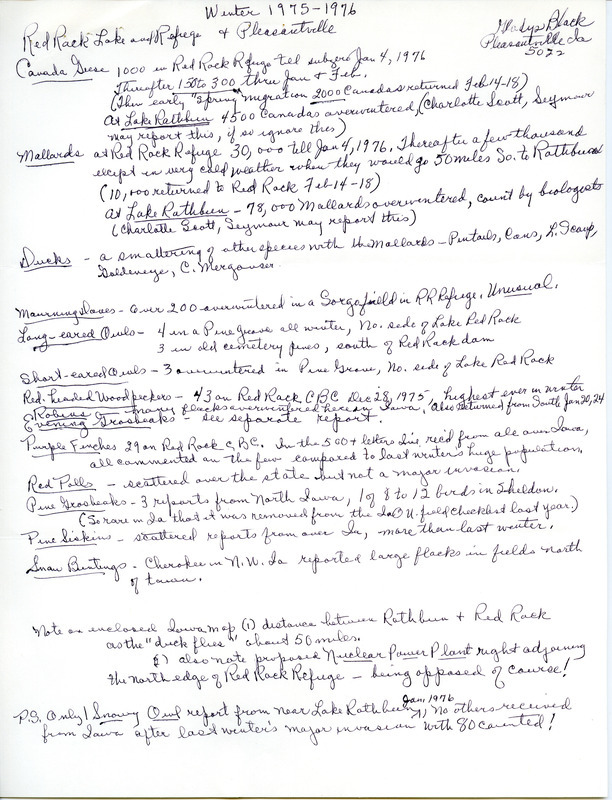 Winter 1975-1976
Gladys Black
Pleasantville Ia
Red Rock Lake and Refuge & Pleasantville
Canada Geese 1000 in Red Rock Refuge till subzero Jan 4, 1976
Thereafter 150 to 300 thru Jan & Feb.
(Thru early "Spring" migration 2000 Canadas returned Feb 14-18)
At Lake Rathbun 4500 Canadas overwintered, (Charlotte Scott, Seymour
may report this, if so ignore this)
Mallards at Red Rock Refuge 30,000 till Jan 4, 1976. Thereafter a few thousand
except in very cold weather when they would go 50 miles So. to Rathbun
(10,000 returned to Red Rock Feb 14-18)
At Lake Rathbun - 78,000 Mallards overwintered, count by biologists
(Charlotte Scott, Seymour may report this)
Ducks - a smattering of other species with the Mallards - Pintails, Cans, L. Scaup,
Goldeneye, C. Merganser.
Mourning Doves - Over 200 overwintered in a Sorgo field in RR Refuge. Unusual.
Long-eared Owls - 4 in a Pine Grove all winter, No. side of Lake Red Rock
3 in old cemetery pines, south of Red Rock dam
Short-eared Owls - 3 overwintered in Pine Grove, No. side of Lake Red Rock
Red-headed Woodpeckers - 43 on Red Rock CBC Dec 28, 1975, highest ever in winter
Robins - many flocks overwintered here in Iowa, also returned from South Jan 20, 24
Evening Grosbeaks - see separate report.
Purple Finches 29 on Red Rock CBC. In the 500+ letters I've rec'd from all over Iowa,
all commented on the few compared to last winter's huge population.
Red Polls - scattered over the state but not a major invasion.
Pine Grosbeaks - 3 reports from North Iowa, 1 of 8 to 12 birds in Sheldon.
(So rare in Ia that it was removed from the IaOU. field checklist last year.)
Pine Siskins - scattered reports from over Ia, more than last winter.
Snow Buntings - Cherokee in N.W. Ia reported large flocks in fields north
of town.
Note on enclosed Iowa map (1) distance between Rathbun & Red Rock
as the "duck flies" about 50 miles.
2) also note proposed Nuclear Power Plant right adjoining
the north edge of Red Rock Refuge - being opposed of course!
P.S. Only 1 Snowy Owl report from near Lake Rathbun Jan, 1976 No others received
from Iowa after last winter's major invasion with 80 counted!